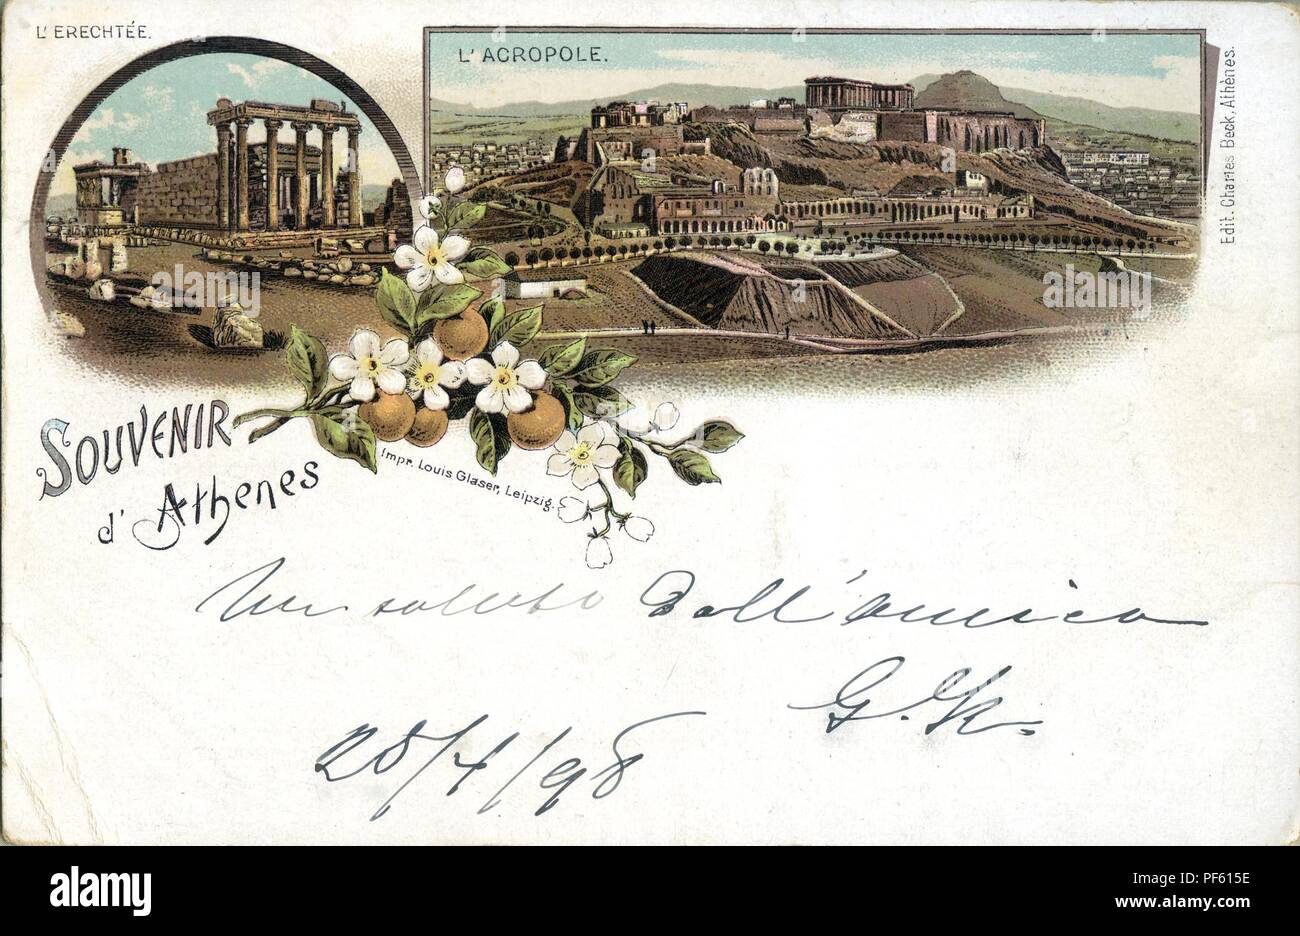 L'ERECHTÉE.
L'ACROPOLE.
Edit. Charles Beck, Athènes.
SOUVENIR
d'Athenes
Impr. Louis Glaser, Leipzig.
Un saluto dall'amico
G. K.
28/4/98
alamy
Image ID: PF615E
www.alamy.com